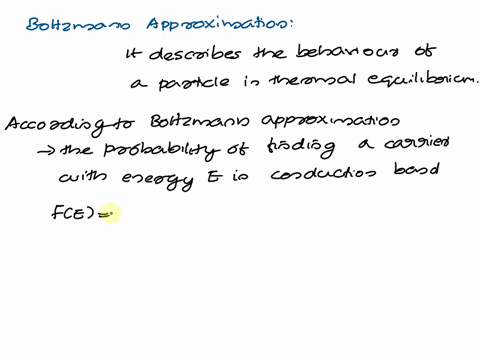 Boltzmann Approximation:
It describes the behaviour of
a particle in thermal equilibrium.
According to Boltzmann approximation
→ the probability of finding a carrier
with energy E in conduction band
F(E) =